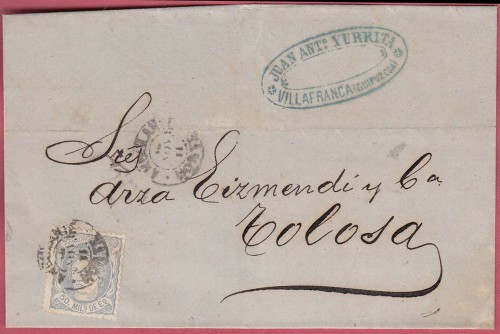 JUAN ANTº YURRITA
VILLAFRANCA (GUIPUZCOA)
Sres
arza Eizmendi y Cª
Tolosa
50 MILS DE E.